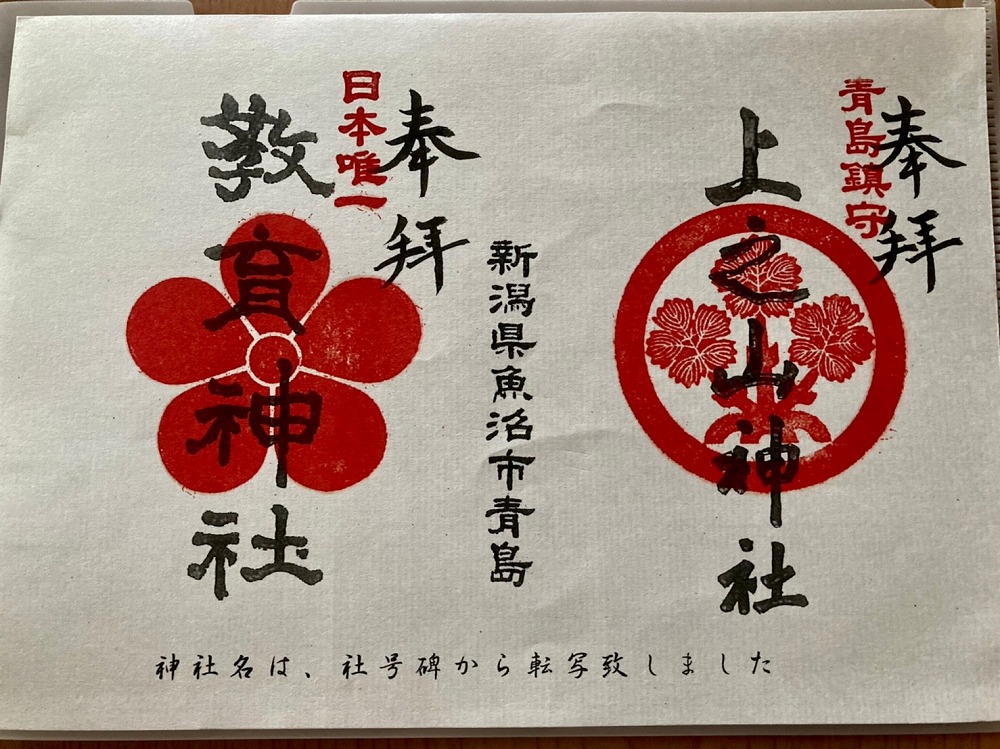 奉拝
青島鎮守
上之山神社
新潟県魚沼市青島
奉拝
日本唯一
教育神社
神社名は、社号碑から転写致しました